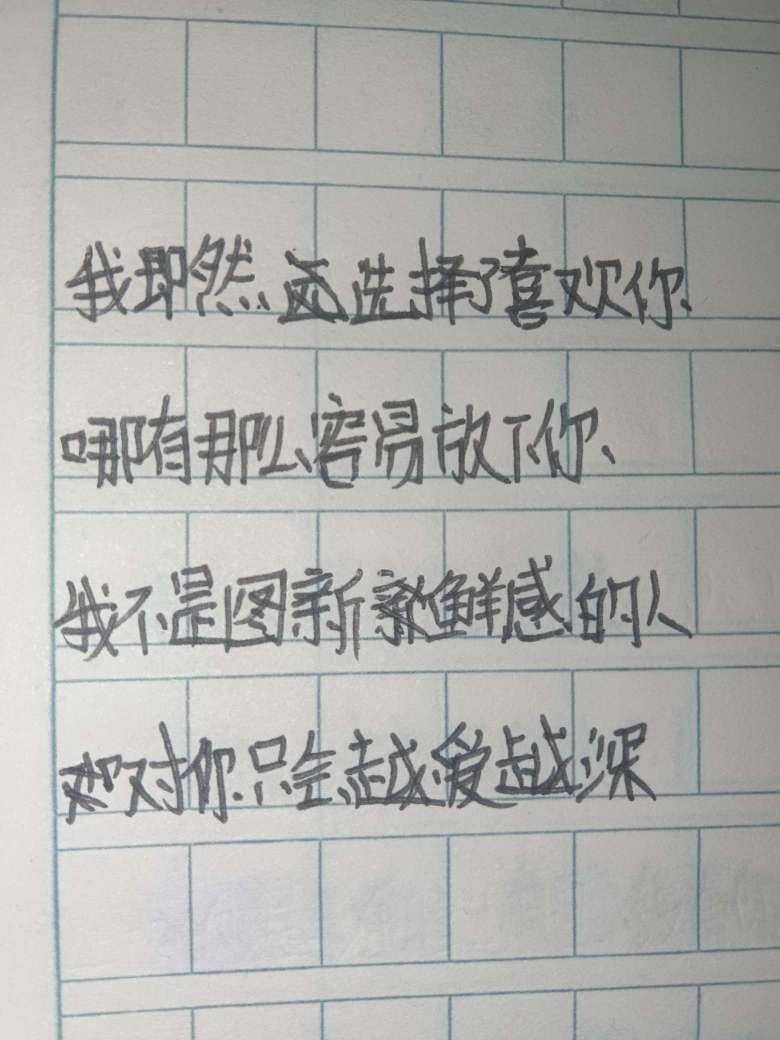 我即然选择了喜欢你、
哪有那么容易放下你、
我不是图新鲜感的人
对你只会越爱越深